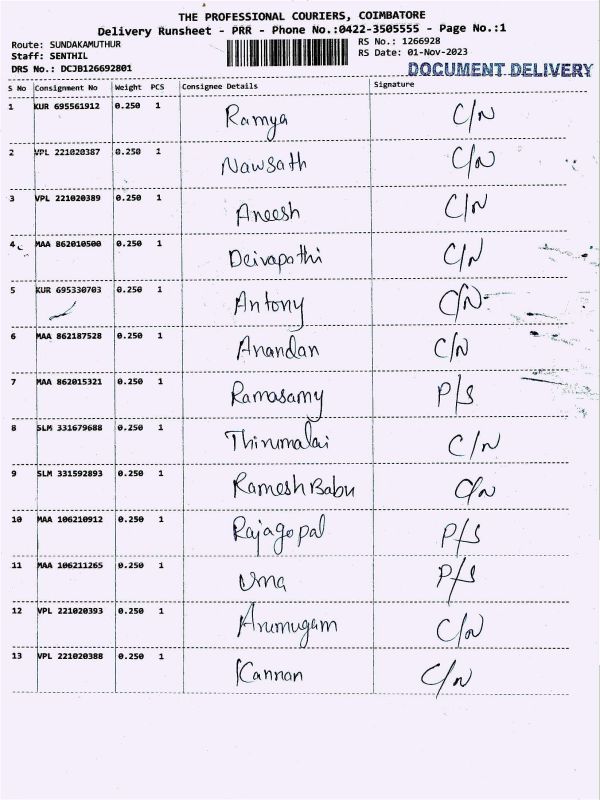 THE PROFESSIONAL COURIERS, COIMBATORE
Delivery Runsheet - PRR - Phone No.:0422-3505555 - Page No.:1
Route: SUNDAKAMUTHUR RS No.: 1266928
Staff: SENTHIL RS Date: 01-Nov-2023
DRS No.: DCJB126692801 DOCUMENT DELIVERY
S No Consignment No Weight PCS Consignee Details Signature
1 KUR 695561912 0.250 1 Ramya C/N
2 VPL 221020387 0.250 1 Nawsath C/N
3 VPL 221020389 0.250 1 Aneesh C/N
4 MAA 862010500 0.250 1 Deivapathi C/N
5 KUR 695330703 0.250 1 Antony C/N
6 MAA 862187528 0.250 1 Anandan C/N
7 MAA 862015321 0.250 1 Ramasamy P/S
8 SLM 331679688 0.250 1 Thirumalai C/N
9 SLM 331592893 0.250 1 Ramesh Babu C/N
10 MAA 106210912 0.250 1 Rajagopal P/S
11 MAA 106211265 0.250 1 Uma P/S
12 VPL 221020393 0.250 1 Arumugam C/N
13 VPL 221020388 0.250 1 Kannan C/N